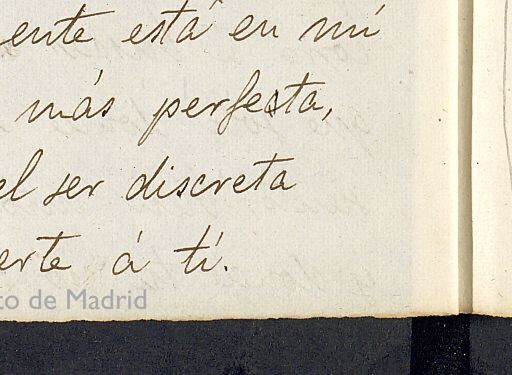 ente está en mí
más perfecta,
el ser discreta
erte á tí.
to de Madrid